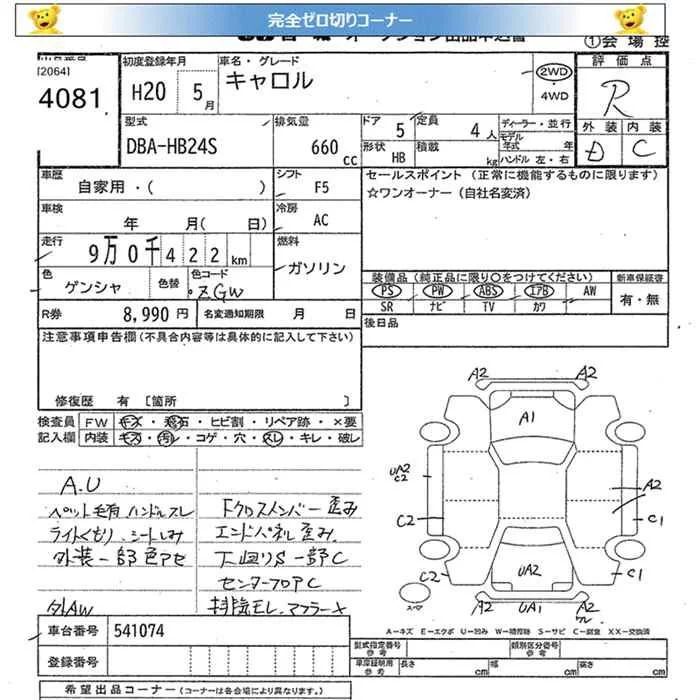 完全ゼロ切りコーナー
オークション出品申込書
①会場控
[2064]
4081
初度登録年月
H20 5月
車名・グレード
キャロル
2WD
・
4WD
評価点
R
外装 内装
D C
型式
DBA-HB24S
排気量
660 cc
ドア 5
定員 4人
形状 HB
積載 kg
ディーラー・並行
モデル
年式 年
ハンドル 左・右
車歴
自家用・( )
シフト
F5
セールスポイント (正常に機能するものに限ります)
☆ワンオーナー(自社名変済)
車検
年 月( 日)
冷房
AC
走行
9万0千422km
燃料
ガソリン
色
ゲンシャ
色替
色コード
ZGW
装備品(純正品に限り○をつけてください)
新車保証書
PS PW ABS エアB AW
SR ナビ TV カワ
有・無
R券 8,990円
名変通知期限 月 日
後日品
注意事項申告欄(不具合内容等は具体的に記入して下さい)
修復歴 有 [箇所 ]
検査員
記入欄
FW キズ・飛石・ヒビ割・リペア跡・×要
内装 キズ・汚レ・コゲ・穴・スレ・キレ・破レ
A.U
ペット毛有 ハンドルスレ
ライトくもり、シートしみ
外装一部色アセ
外AW
Fクロスメンバー歪み
エンドパネル歪み
下廻りS一部C
センターフロアC
排気モレ、マフラー×
A2 A2
A1
UA2
C2
A2
C2 C1
C2 UA2 C1
スペア
A2 UA1 A2
ワレ
A-キズ E-エクボ U-凹み W-補修跡 S-サビ C-腐食 XX-交換済
車台番号 541074
登録番号
型式指定番号
参考
類別区分番号
参考
車庫証明用
参考
長さ cm 幅 cm 高さ cm
希望出品コーナー(コーナーは各会場により異なります。)